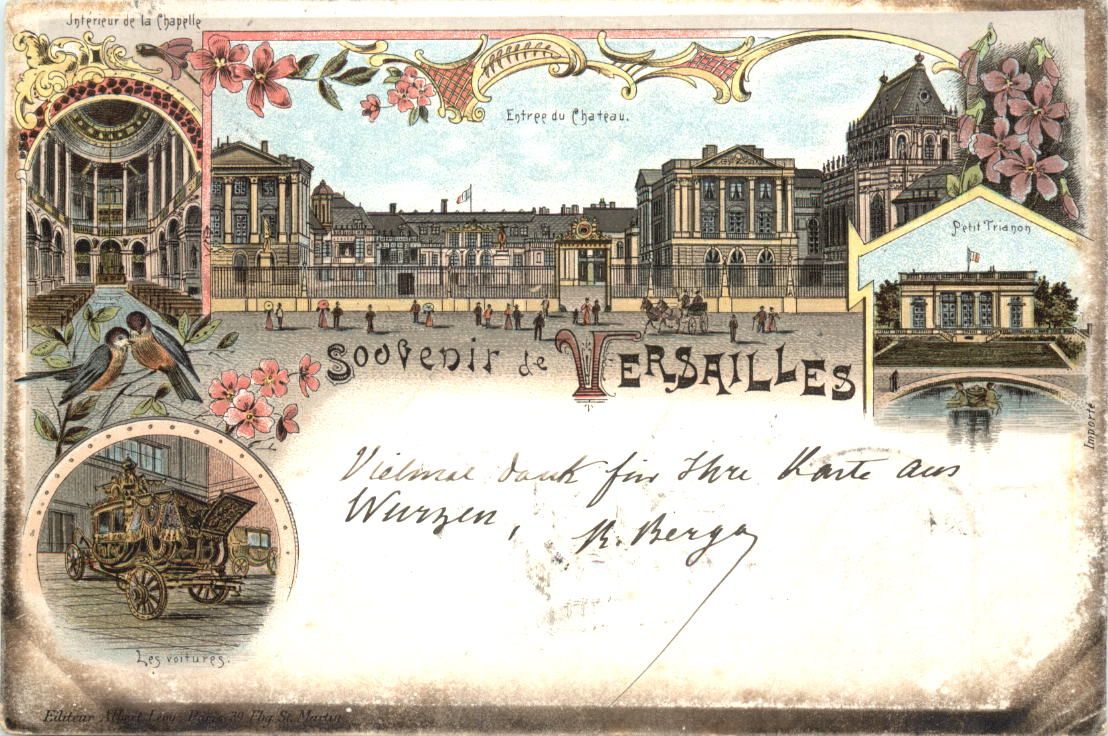 Intérieur de la Chapelle
Entree du Chateau.
Petit Trianon
Souvenir de Versailles
Importé
Vielmal dank für Ihre Karte aus
Wurzen,
R. Berga
Les voitures.
Editeur Albert Lévy, Paris 39 Fbg St. Martin